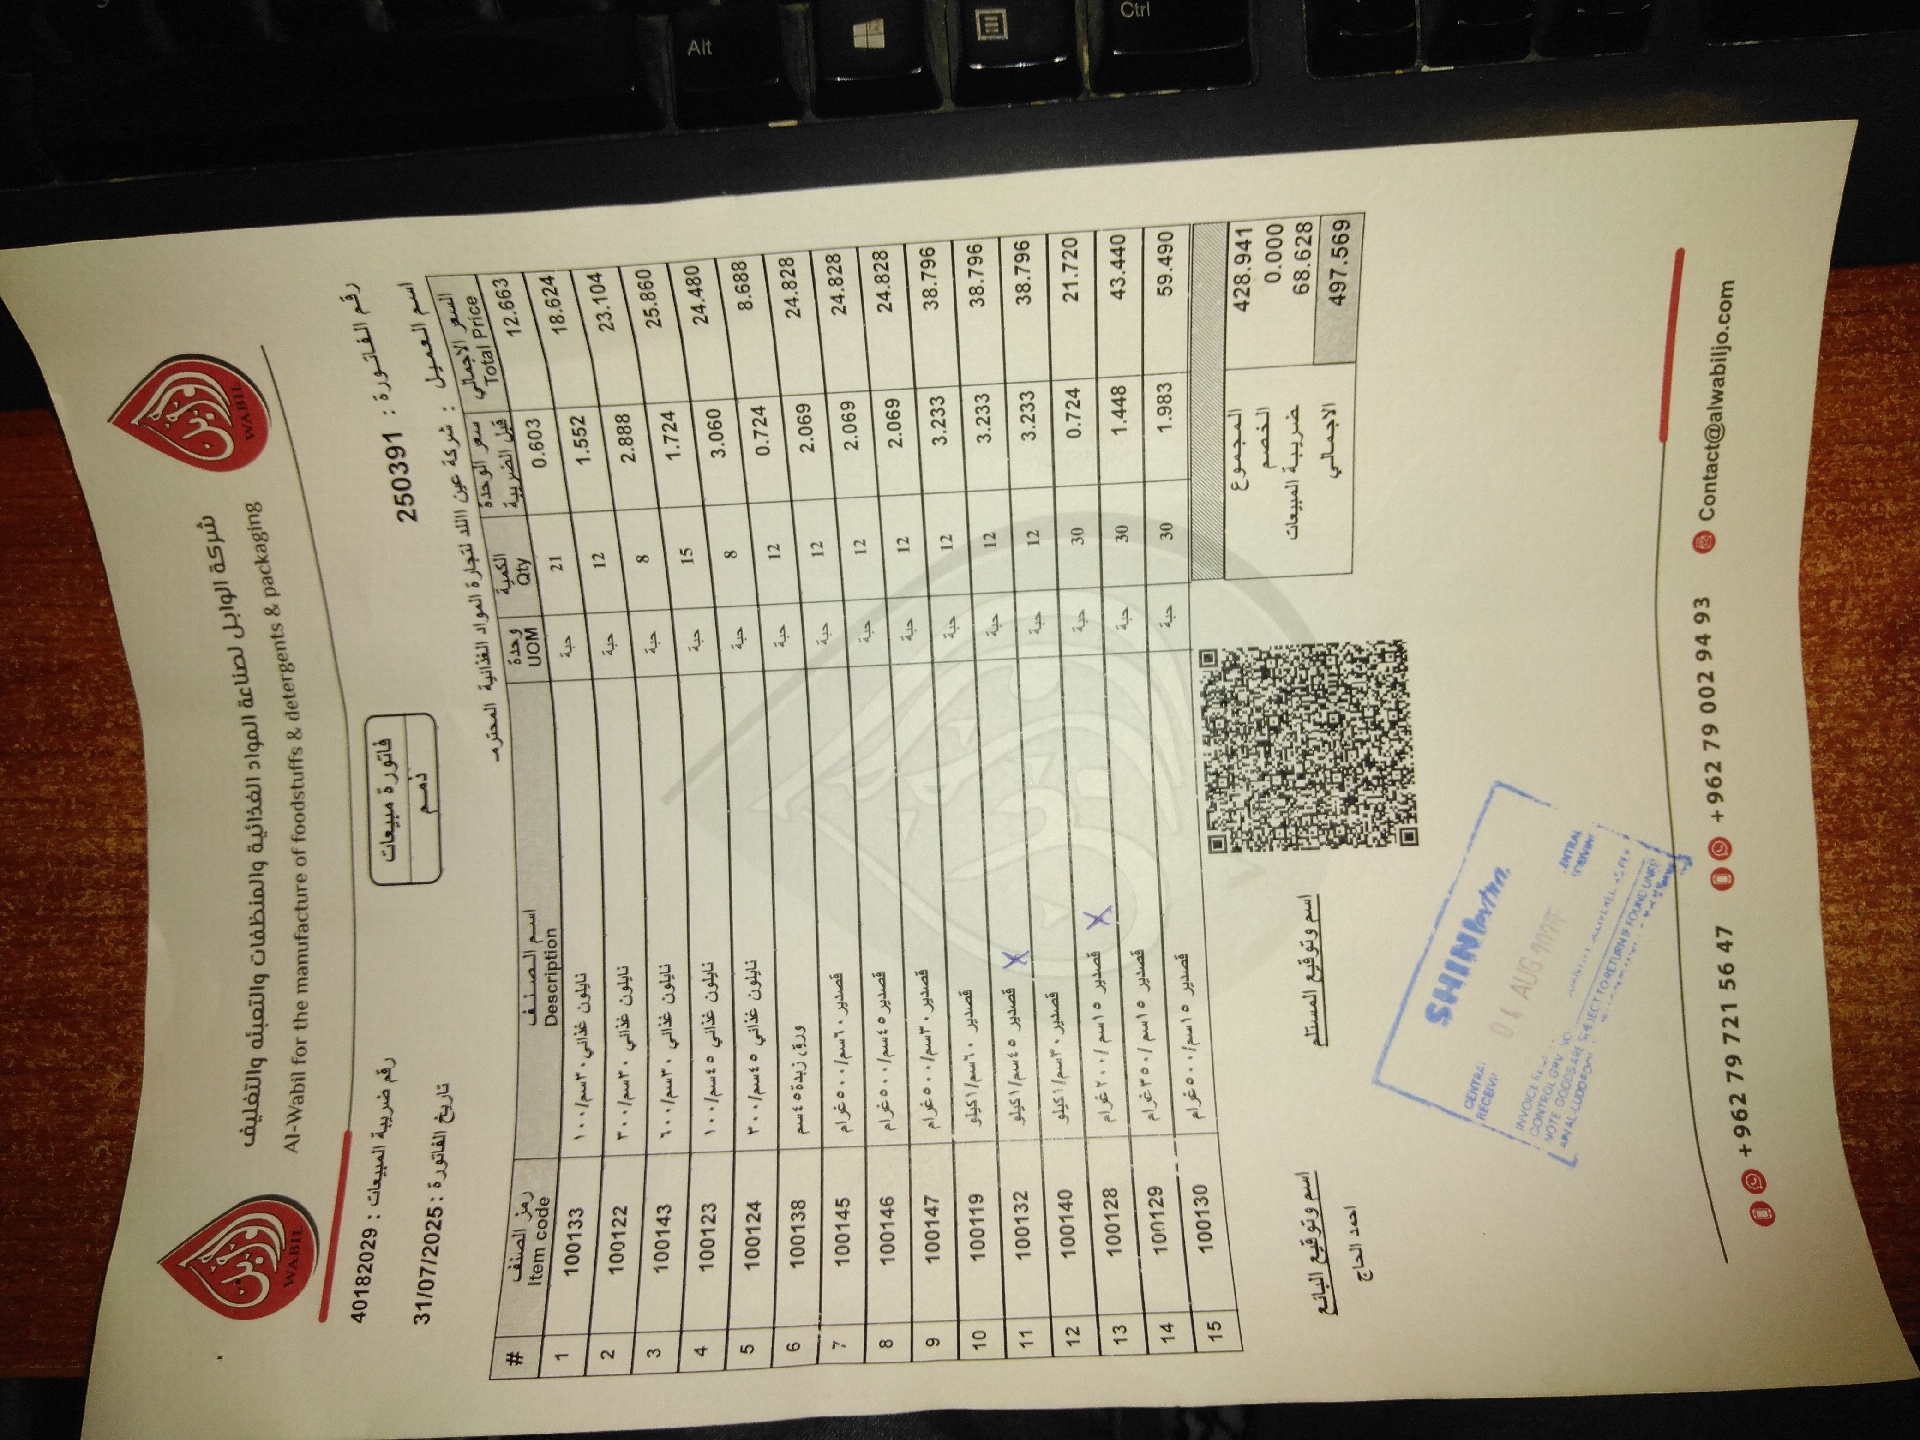 شركة الوابل لصناعة المواد الغذائية والمنظفات والتعبئه والتغليف
Al-Wabil for the manufacture of foodstuffs & detergents & packaging
WABIL
WABIL
رقم ضريبة المبيعات : 40182029
فاتورة مبيعات
ذمم
رقم الفاتورة : 250391
تاريخ الفاتورة : 31/07/2025
اسم العميل : شركة عين اللد لتجارة المواد الغذائية المحترم
# رمز الصنف اسم الصنف وحدة الكمية سعر الوحدة قبل الضريبة السعر الاجمالي
Item code Description UOM Qty Total Price
1 100133 نايلون غذائي ٣٠سم/١٠٠ حبة 21 0.603 12.663
2 100122 نايلون غذائي ٣٠سم/٣٠٠ حبة 12 1.552 18.624
3 100143 نايلون غذائي ٣٠سم/٦٠٠ حبة 8 2.888 23.104
4 100123 نايلون غذائي ٤٥سم/١٠٠ حبة 15 1.724 25.860
5 100124 نايلون غذائي ٤٥سم/٣٠٠ حبة 8 3.060 24.480
6 100138 ورق زبدة ٤٥سم حبة 12 0.724 8.688
7 100145 قصدير ٦٠سم/٥٠٠غرام حبة 12 2.069 24.828
8 100146 قصدير ٤٥سم/٥٠٠غرام حبة 12 2.069 24.828
9 100147 قصدير ٣٠سم/٥٠٠غرام حبة 12 2.069 24.828
10 100119 قصدير ٦٠سم/١كيلو حبة 12 3.233 38.796
11 100132 قصدير ٤٥سم/١كيلو X حبة 12 3.233 38.796
12 100140 قصدير ٣٠سم/١كيلو حبة 12 3.233 38.796
13 100128 قصدير ١٥سم/٢٠٠غرام X حبة 30 0.724 21.720
14 100129 قصدير ١٥سم/٣٥٠غرام حبة 30 1.448 43.440
15 100130 قصدير ١٥سم/٥٠٠غرام حبة 30 1.983 59.490
المجموع 428.941
الخصم 0.000
ضريبة المبيعات 68.628
الاجمالي 497.569
اسم وتوقيع البائع
اسم وتوقيع المستلم
احمد الحاج
CENTRAL
SHIN
04 AUG
CONTROL GRV NO
NOTE GOODS ARE SUBJECT TO RETURN IF FOUND
+962 79 721 56 47
+962 79 002 94 93
Contact@alwabiljo.com
Alt
Ctrl